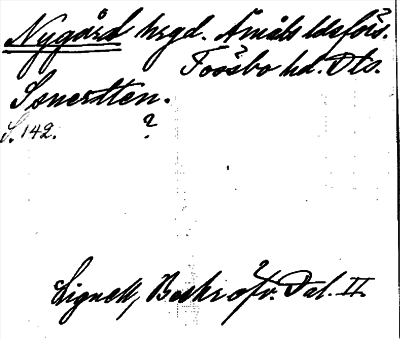 Nygård hrgd. Åmåls ldsförs.
Tössbo hd. Dls.
Snerdten.
S. 142. ?
Lignell, Beskr. öfv. Dal. II.